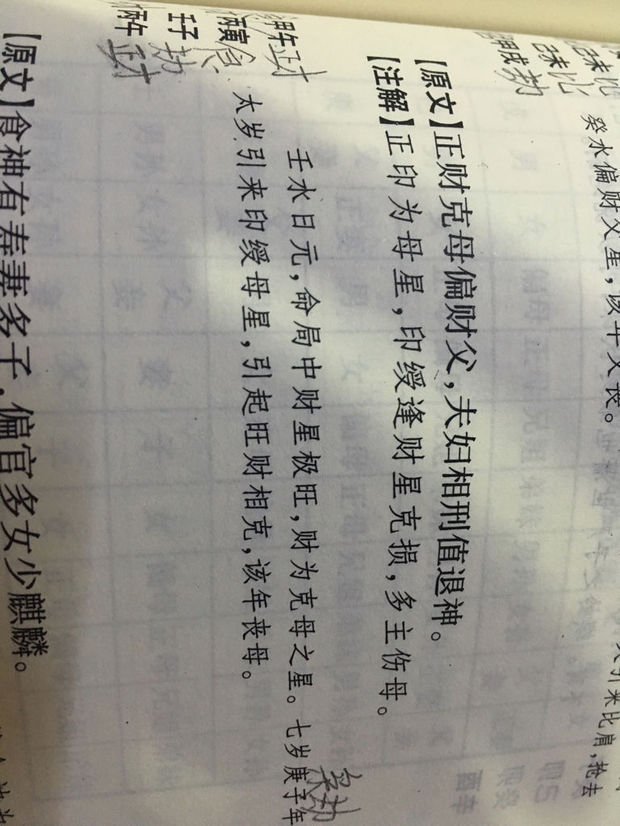 引来比肩,抢去
癸水偏财父星,该年父丧。
【原文】正财克母偏财父,夫妇相刑值退神。
【注解】正印为母星,印绶逢财星克损,多主伤母。
午 正才
寅 食
壬子 劫
午 正才
壬水日元,命局中财星极旺,财为克母之星。七岁庚子年
太岁引来印绶母星,引起旺财相克,该年丧母。
【原文】食神有寿妻多子,偏官多女少麒麟。